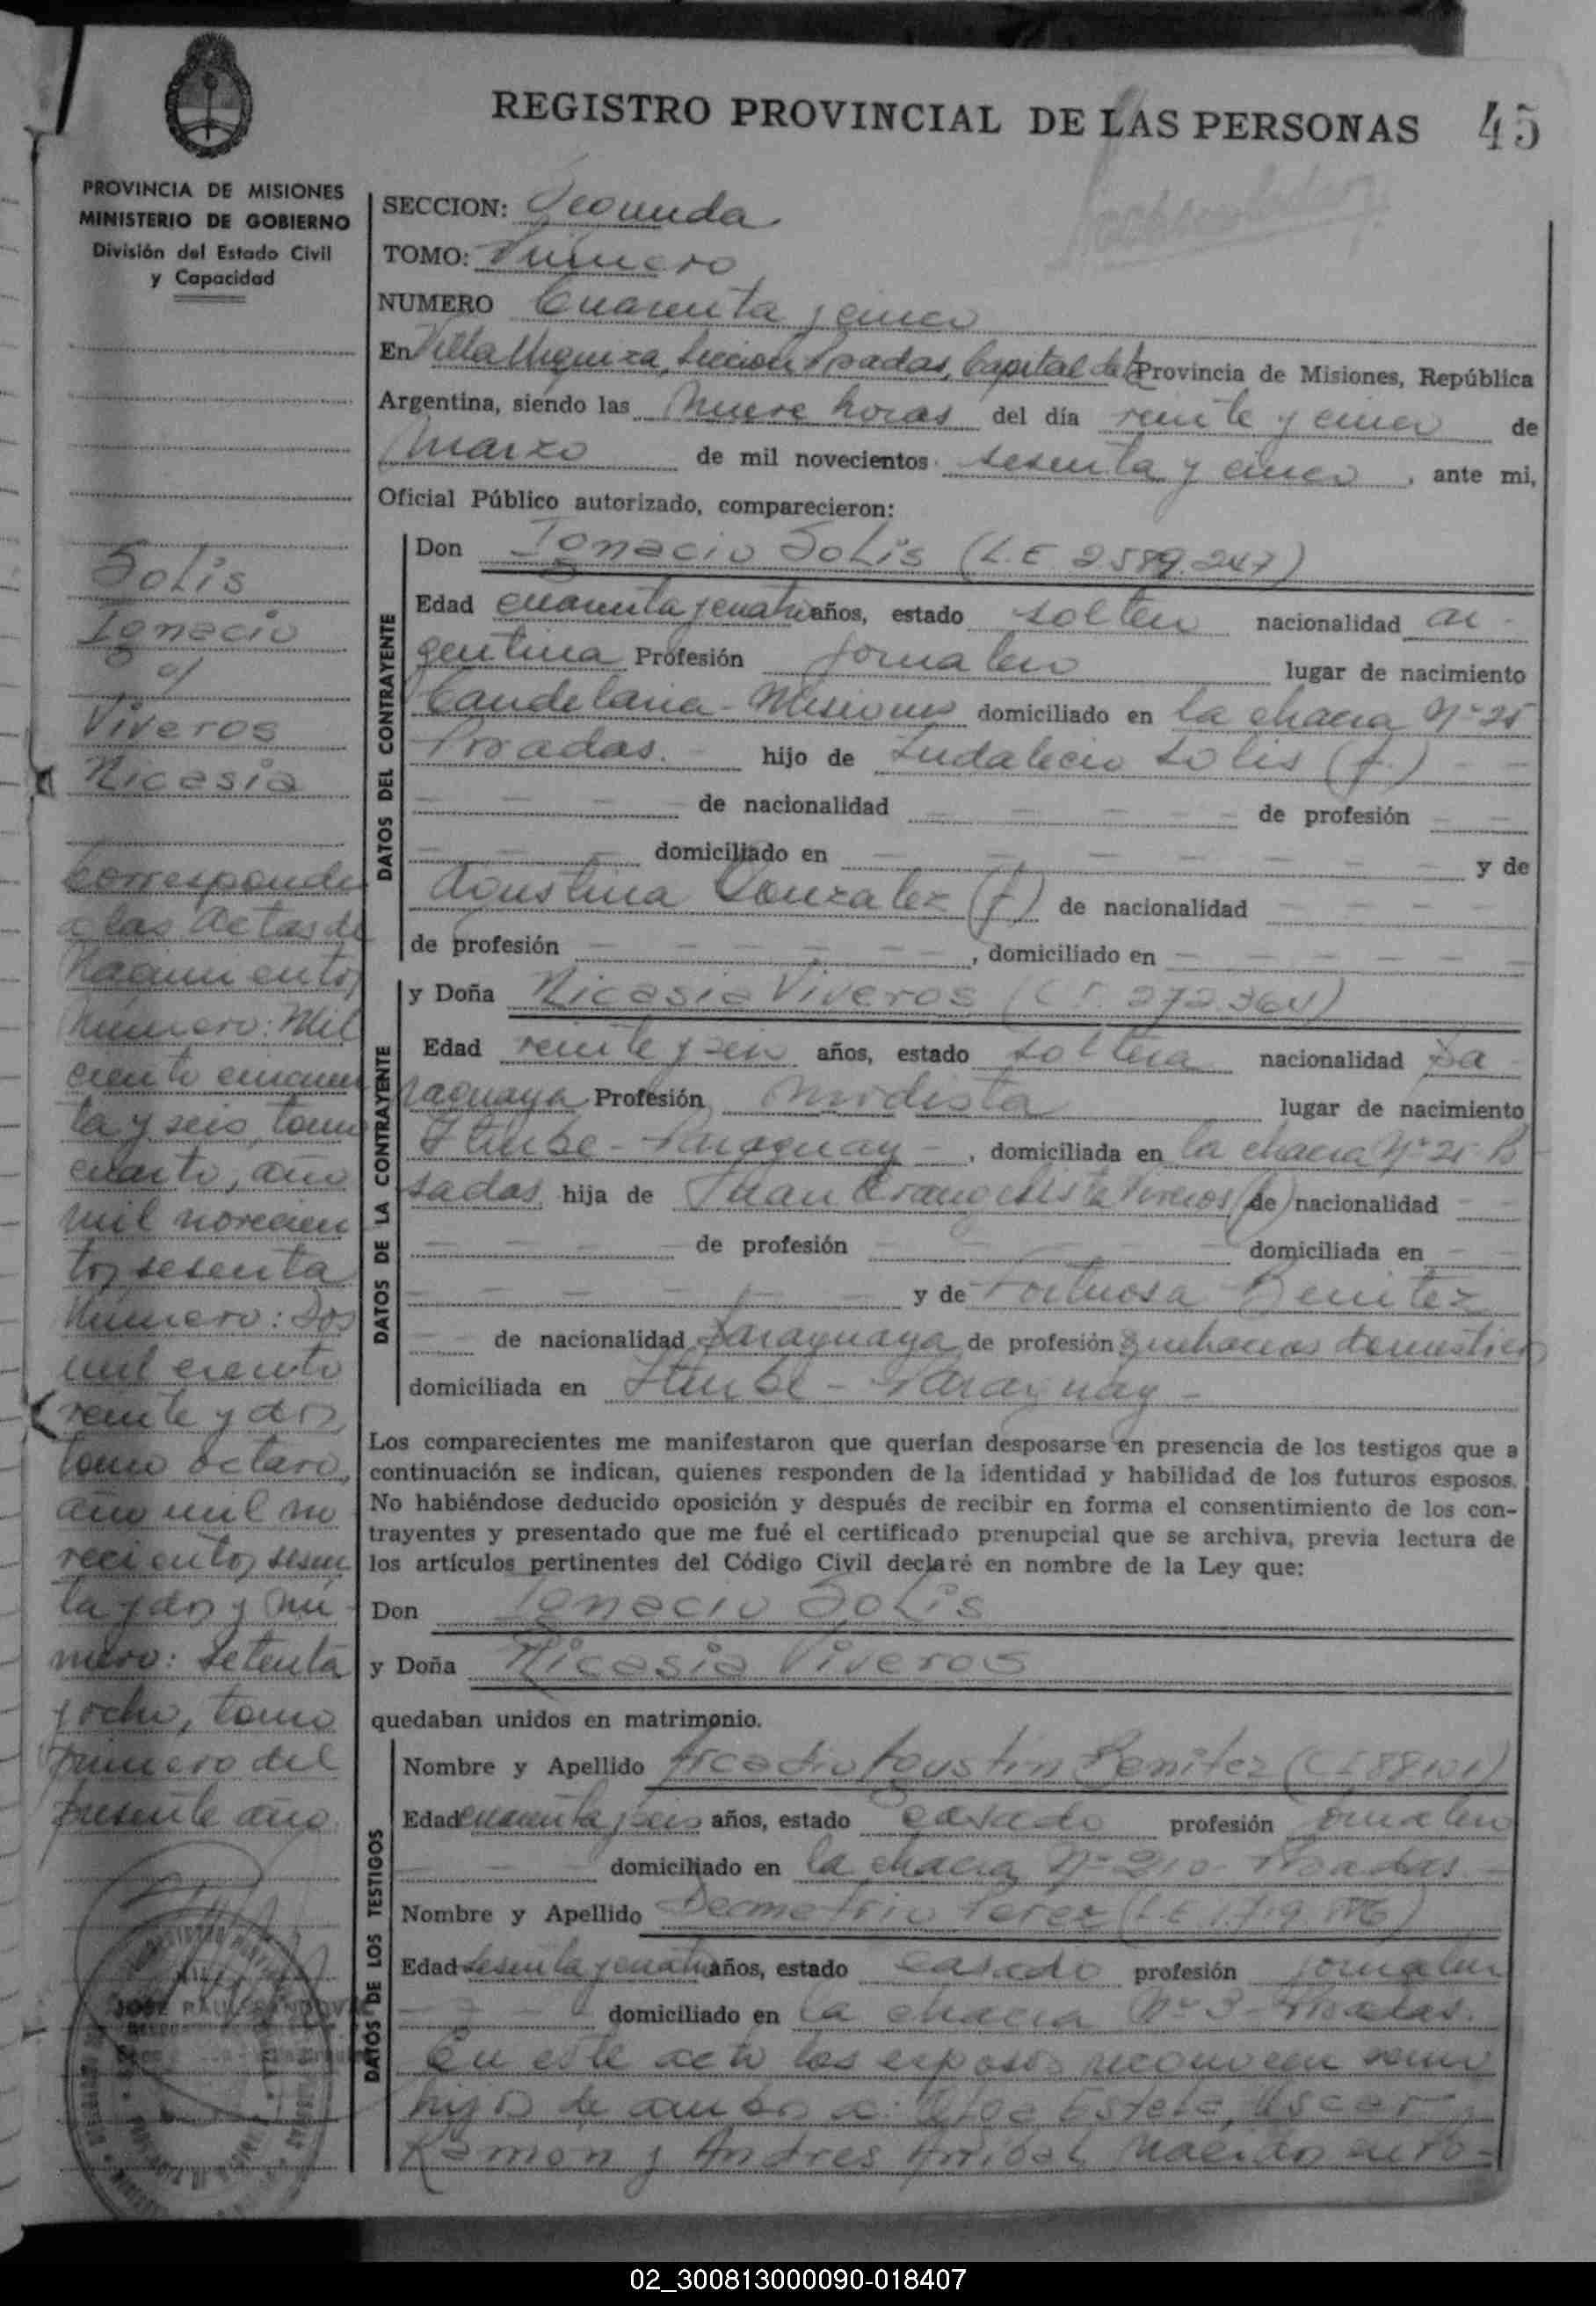 REGISTRO PROVINCIAL DE LAS PERSONAS 45
PROVINCIA DE MISIONES
MINISTERIO DE GOBIERNO
División del Estado Civil
y Capacidad
Solis
Ignacio
c/
Viveros
Nicasia
Corresponde
a las Actas de
Nacimientos
Número: Mil
ciento cincuen
ta y seis, tomo
cuarto, año
mil novecien
tos sesenta
Número: Dos
mil ciento
veinte y dos,
tomo octavo,
año mil no
vecientos sesen
ta y dos y Nú
mero: setenta
y ocho, tomo
primero del
presente año
SECCION: Segunda
TOMO: Primero
NUMERO Cuarenta y cinco
En Villa Urquiza, Sección Posadas, Capital de la Provincia de Misiones, República
Argentina, siendo las nueve horas del día veinte y cinco de
Marzo de mil novecientos sesenta y cinco, ante mi,
Oficial Público autorizado, comparecieron:
DATOS DEL CONTRAYENTE
Don Ignacio Solis (L.E. 2589.247)
Edad cuarenta y cuatro años, estado soltero nacionalidad ar-
gentina Profesión Jornalero lugar de nacimiento
Candelaria - Misiones domiciliado en la chacra Nº 25
Posadas. hijo de Indalecio Solis (f.) - -
- - - - de nacionalidad - - - - de profesión - -
- - - domiciliado en - - - - - - y de
Agustina Gonzalez (f) de nacionalidad - - - -
de profesión - - - - - -, domiciliado en - - - - -
DATOS DE LA CONTRAYENTE
y Doña Nicasia Viveros (C.I. 272.364)
Edad veinte y seis años, estado soltera nacionalidad pa
raguaya Profesión modista lugar de nacimiento
Iturbe - Paraguay -, domiciliada en la chacra Nº 25 Po
sadas, hija de Juan Evangelista Viveros (f) de nacionalidad - -
- - - - de profesión - - - - domiciliada en - -
- - - - - - y de Fortuosa Benitez
- - de nacionalidad Paraguaya de profesión quehaceres domésticos
domiciliada en Iturbe - Paraguay -
Los comparecientes me manifestaron que querían desposarse en presencia de los testigos que a
continuación se indican, quienes responden de la identidad y habilidad de los futuros esposos.
No habiéndose deducido oposición y después de recibir en forma el consentimiento de los con-
trayentes y presentado que me fué el certificado prenupcial que se archiva, previa lectura de
los artículos pertinentes del Código Civil declaré en nombre de la Ley que:
Don Ignacio Solis
y Doña Nicasia Viveros
quedaban unidos en matrimonio.
DATOS DE LOS TESTIGOS
Nombre y Apellido Arcadio Agustín Benitez (C.I. 88101)
Edad cuarenta y seis años, estado casado profesión Jornalero
- - - domiciliado en la chacra Nº 210 - Posadas -
Nombre y Apellido Demetrio Perez (L.E.
Edad sesenta y cuatro años, estado casado profesión Jornalero
- - - domiciliado en la chacra Nº 3 - Posadas.
En este acto los esposos reconocen como
hijos de ambos a: Estela, Oscar
Ramón y Andres Anibal nacidos en Po-
JOSE RAUL SANDOVAL
02_300813000090-018407